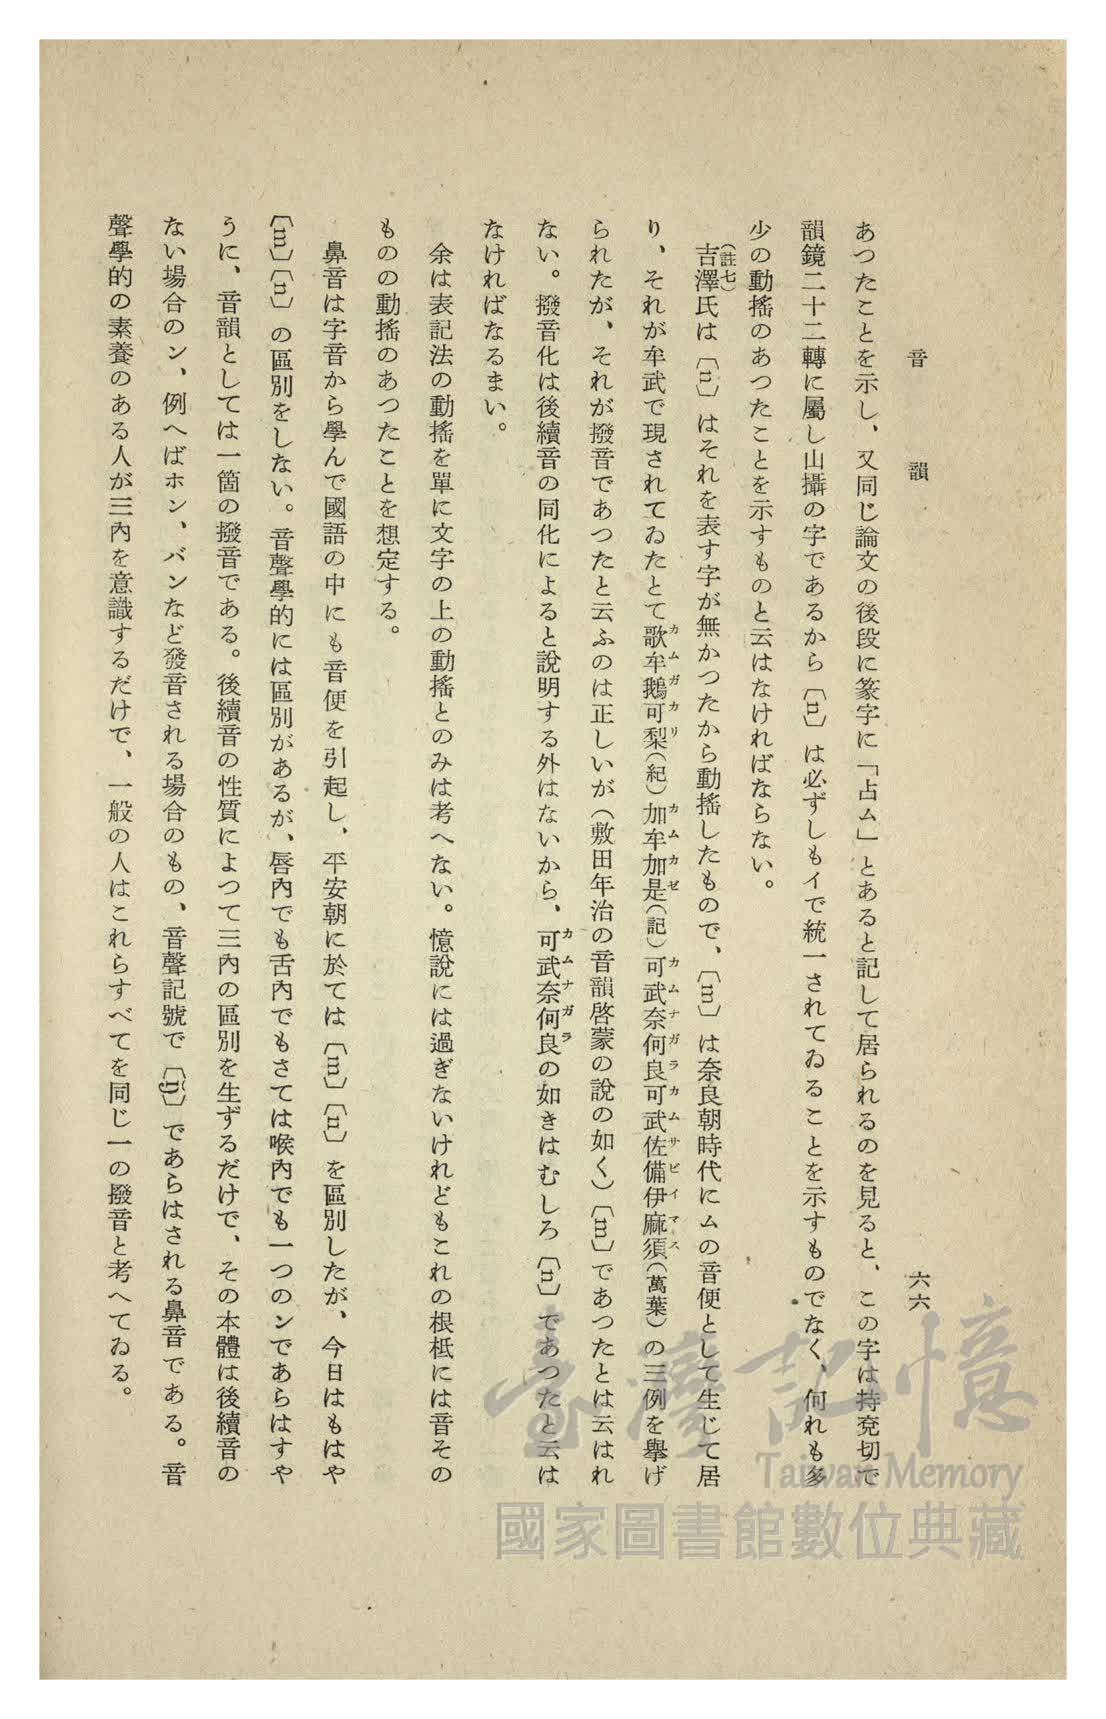 音韻
六六
あつたことを示し、又同じ論文の後段に篆字に「占ム」とあると記して居られるのを見ると、この字は持兗切で
韻鏡二十二轉に屬し山攝の字であるから〔n〕は必ずしもイで統一されてゐることを示すものでなく、何れも多
少の動搖のあつたことを示すものと云はなければならない。
吉澤氏は（註七）〔n〕はそれを表す字が無かつたから動搖したもので、〔m〕は奈良朝時代にムの音便として生じて居
り、それが牟武で現されてゐたとて歌牟鵝可梨（紀）加牟加是（記）可武奈何良可武佐備伊麻須（萬葉）の三例を擧げ
カムガカリ カムカゼ カムナガラカムサビイマス
られたが、それが撥音であつたと云ふのは正しいが（敷田年治の音韻啓蒙の說の如く）〔m〕であつたとは云はれ
ない。撥音化は後續音の同化によると說明する外はないから、可武奈何良の如きはむしろ〔n〕であつたと云は
カムナガラ
なければなるまい。
余は表記法の動搖を單に文字の上の動搖とのみは考へない。憶說には過ぎないけれどもこれの根柢には音その
ものの動搖のあつたことを想定する。
鼻音は字音から學んで國語の中にも音便を引起し、平安朝に於ては〔m〕〔n〕を區別したが、今日はもはや
〔m〕〔n〕の區別をしない。音聲學的には區別があるが、唇內でも舌內でもさては喉內でも一つのンであらはすや
うに、音韻としては一箇の撥音である。後續音の性質によつて三內の區別を生ずるだけで、その本體は後續音の
ない場合のン、例へばホン、バンなど發音される場合のもの、音聲記號で〔ŋ〕であらはされる鼻音である。音
聲學的の素養のある人が三內を意識するだけで、一般の人はこれらすべてを同じ一の撥音と考へてゐる。
臺灣記憶
Taiwan Memory
國家圖書館數位典藏